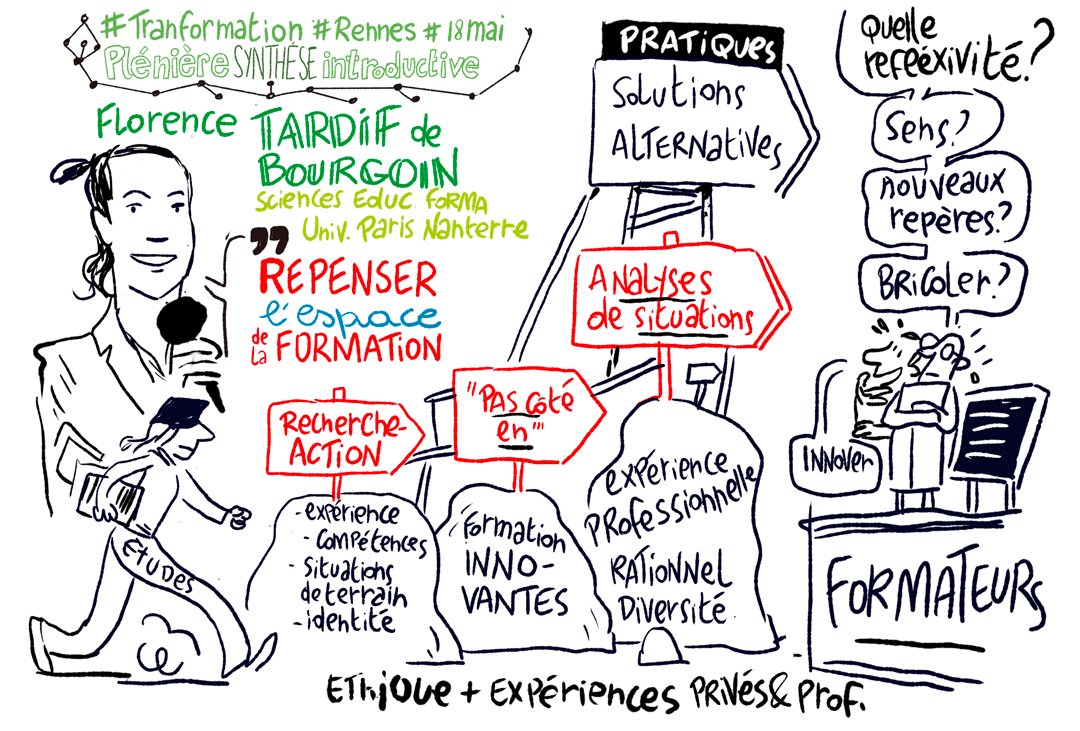 #Tranformation #Rennes #18mai
Plénière SYNTHÈSE introductive
Florence TARDIF de
BOURGOIN
Sciences Educ. FORMA
Univ. Paris Nanterre
"REPENSER
l'espace
de la FORMATION
PRATIQUES
Solutions
ALTERNATIVES
Quelle
refeéxivité?
Sens?
nouveaux
repères?
BRICOLER?
ANALYSES
de situations
"PAS côté
en"
Recherche-
ACTION
INNOVER
- expérience
- COMPÉTENCES
- situations
de terrain
- identité
Formation
INNO-
VANTES
expérience
PROfessionnelle
RATIONNEL
DIVERSITÉ
ETUDES
FORMATEURS
EThiQUE + EXPÉRIENCES PRIVÉS & Prof.